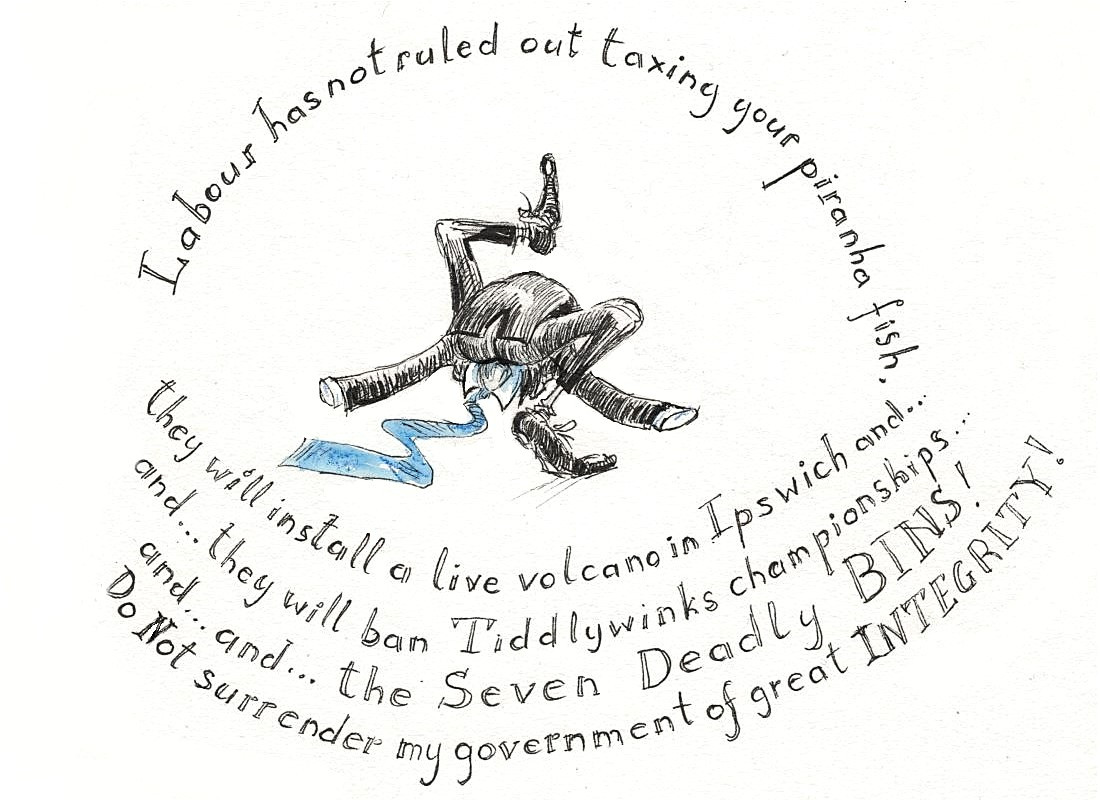 Labour has not ruled out taxing your piranha fish,
they will install a live volcano in Ipswich and...
and... they will ban Tiddlywinks championships...
and... and... the Seven Deadly BINS!
Do Not surrender my government of great INTEGRITY!